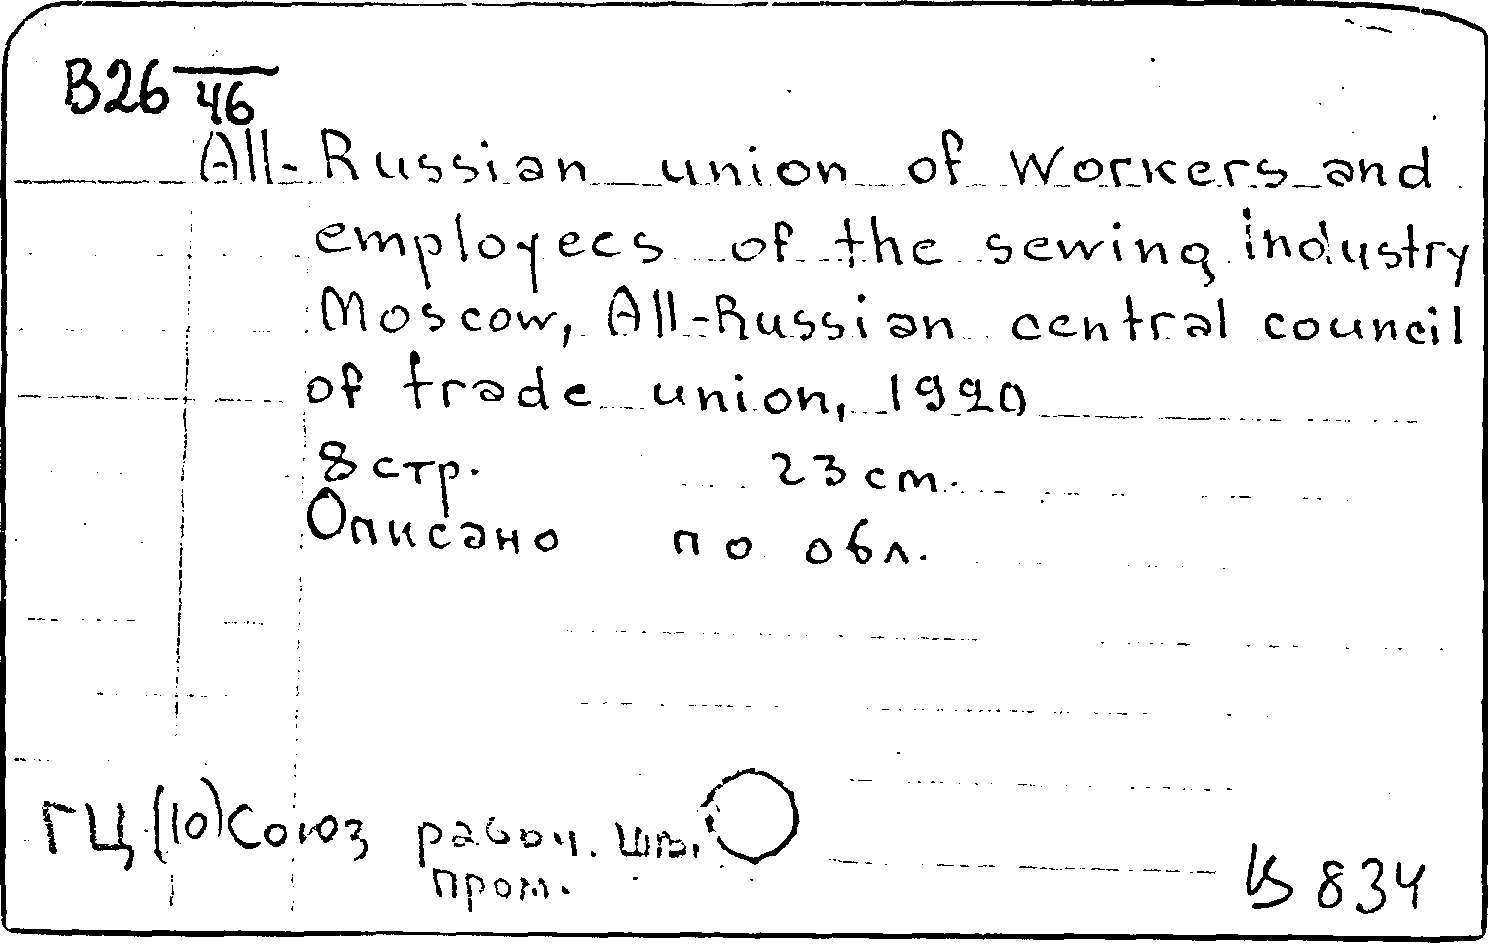 B26 46
All-Russian union of workers and
employees of the sewing industry
Moscow, All-Russian central council
of trade union, 1920
8 стр. 23 cm.
Описано по обл.
ГЦ(10)Союз рабоч. шв.
пром.
834